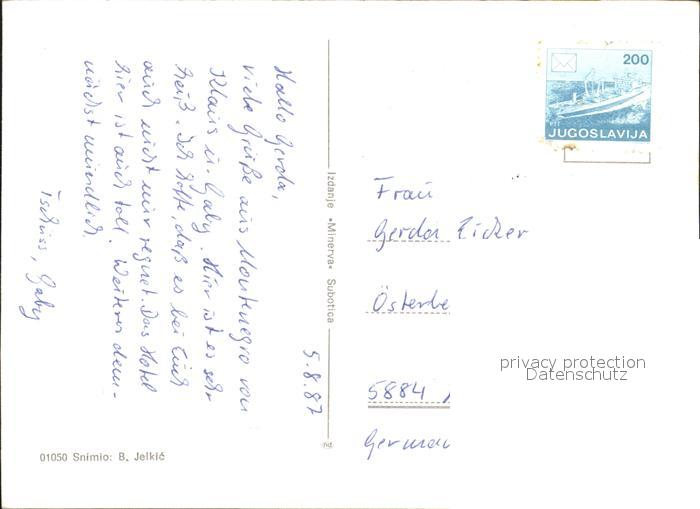 5.8.87
Hallo Gerda,
viele Grüße aus Montenegro von
Klaus u. Gaby. Hier ist es sehr
heiß. Ich hoffe, daß es bei Euch
auch nicht nur regnet. Das Hotel
hier ist auch toll. Weiteres dem-
nächst mündlich.
Tschüss, Gaby
Izdanje »Minerva« Subotica
200
PTT
JUGOSLAVIJA
Frau
Gerda Eicker
Österbe
5884
German
privacy protection
Datenschutz
01050 Snimio: B. Jelkić